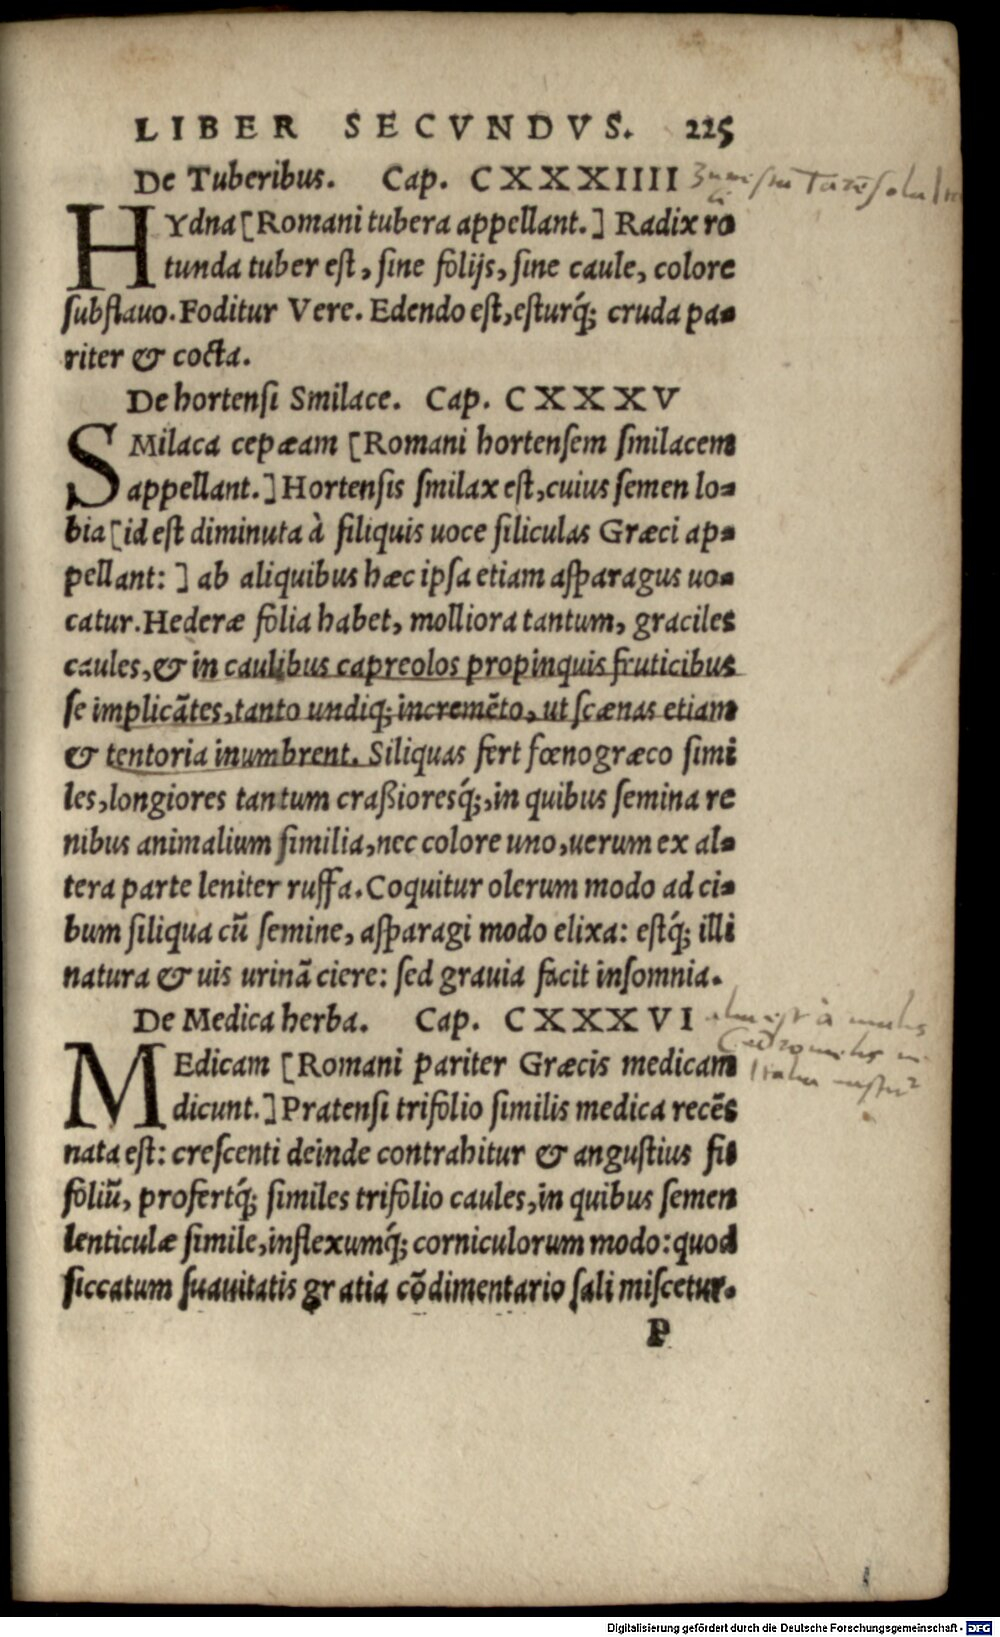 LIBER SECVNDVS. 225
De Tuberibus. Cap. CXXXIIII
HYdna [Romani tubera appellant.] Radix ro
tunda tuber est, sine folijs, sine caule, colore
subflauo. Foditur Vere. Edendo est, esturq́; cruda pa-
riter & cocta.
De hortensi Smilace. Cap. CXXXV
SMilaca cepæam [Romani hortensem smilacem
appellant.] Hortensis smilax est, cuius semen lo-
bia [id est diminuta à siliquis uoce siliculas Græci ap-
pellant: ] ab aliquibus hæc ipsa etiam asparagus uo-
catur. Hederæ folia habet, molliora tantum, graciles
caules, & in caulibus capreolos propinquis fruticibus
se implicātes, tanto undiq; incremēto, ut scænas etiam
& tentoria inumbrent. Siliquas fert fœnogræco simi
les, longiores tantum craßioresq́;, in quibus semina re
nibus animalium similia, nec colore uno, uerum ex al-
tera parte leniter ruffa. Coquitur olerum modo ad ci-
bum siliqua cū semine, asparagi modo elixa: estq́; illi
natura & uis urinā ciere: sed grauia facit insomnia.
De Medica herba. Cap. CXXXVI
MEdicam [Romani pariter Græcis medicam
dicunt.] Pratensi trifolio similis medica recēs
nata est: crescenti deinde contrahitur & angustius fit
foliū, profertq́; similes trifolio caules, in quibus semen
lenticulæ simile, inflexumq́; corniculorum modo: quod
siccatum suauitatis gratia cōdimentario sali miscetur.
P
Digitalisierung gefördert durch die Deutsche Forschungsgemeinschaft - DFG